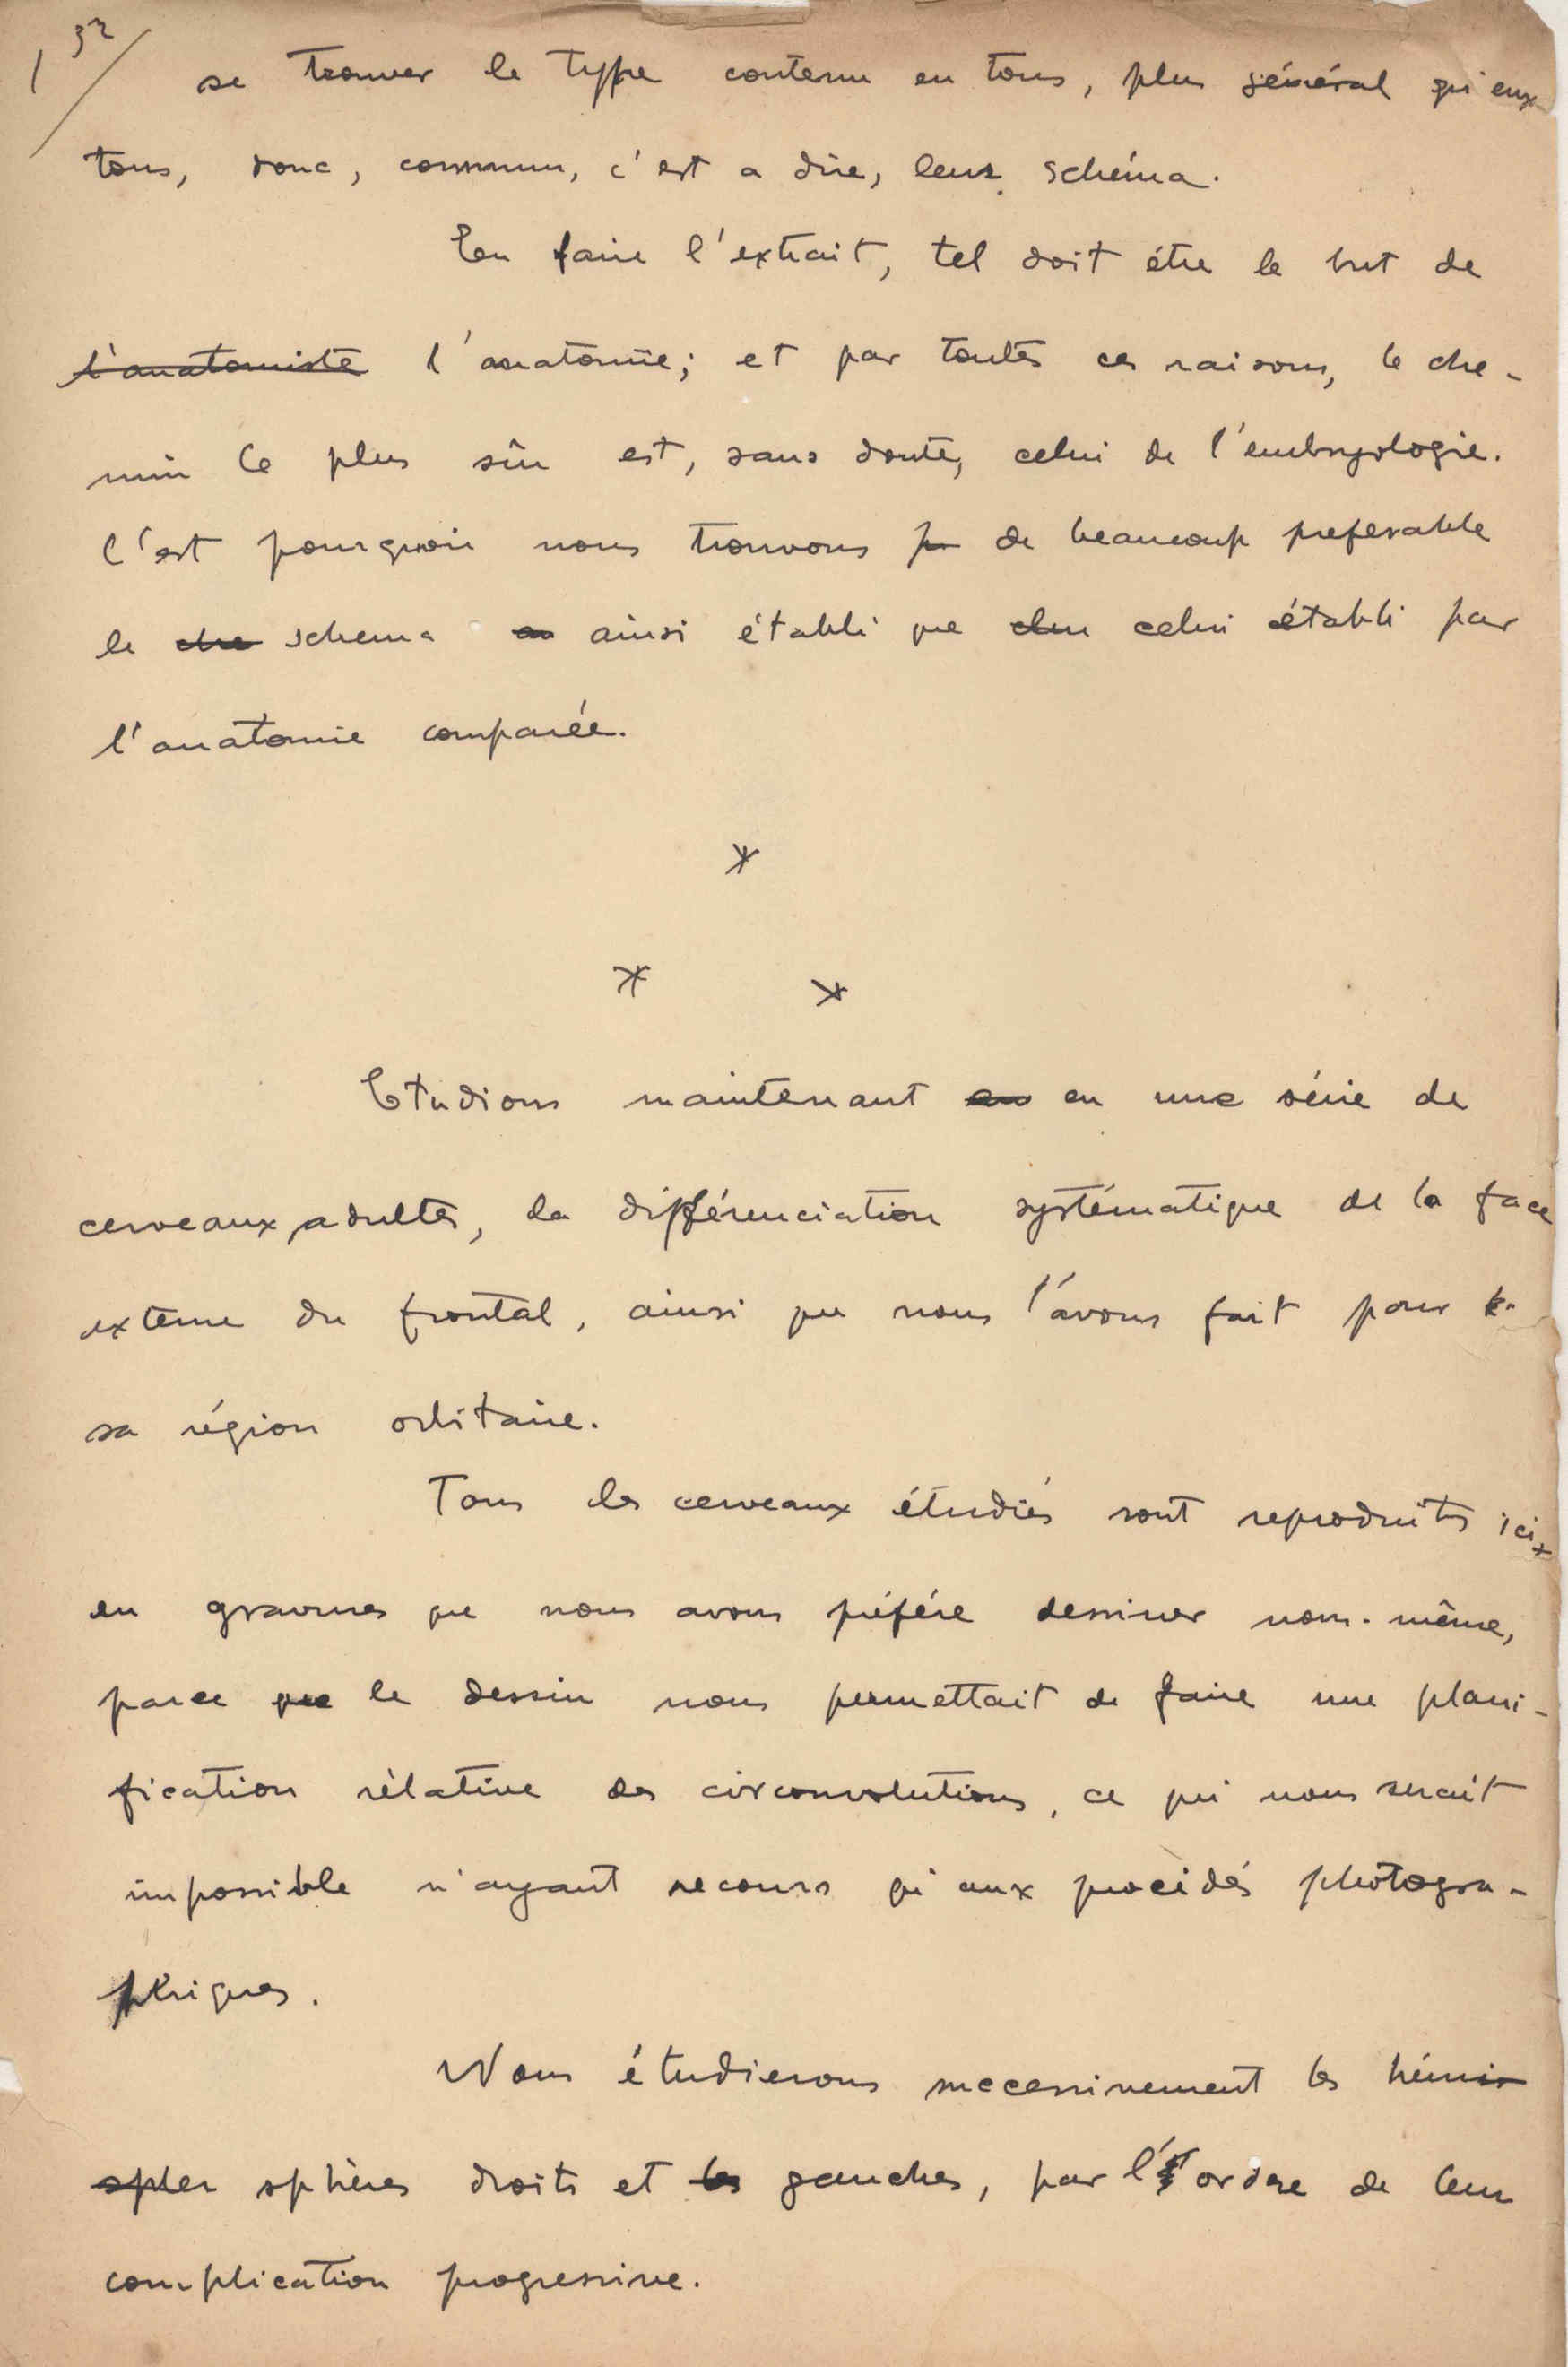 32
se trouver le type contenu en tous, plus général qu'eux
tous, donc, commun, c'est a dire, leur schéma.
En faire l'extrait, tel doit étre le but de
l'anatomiste l'anatomie; et par toutes ces raisons, le che-
min le plus sûr est, sans doute, celui de l'embryologie.
C'est pourquoi nous trouvons p de beaucoup preferable
le che schema ainsi établi que celui établi par
l'anatomie comparée.
*
* *
Etudions maintenant en une série de
cerveaux adultes, la différenciation systématique de la face
externe du frontal, ainsi que nous l'avons fait pour
sa région orbitaire.
Tous les cerveaux étudiés sont reproduits ici
en gravures que nous avons préfére dessiner nous-même,
parce que le dessin nous permettait de faire une plani-
fication rélative des circonvolutions, ce qui nous serait
impossible n'ayant recours qu'aux procédés photogra-
phiques.
Nous étudierons successivement les hémis
spher sphères droits et les gauches, par l'ordre de leur
complication progressive.